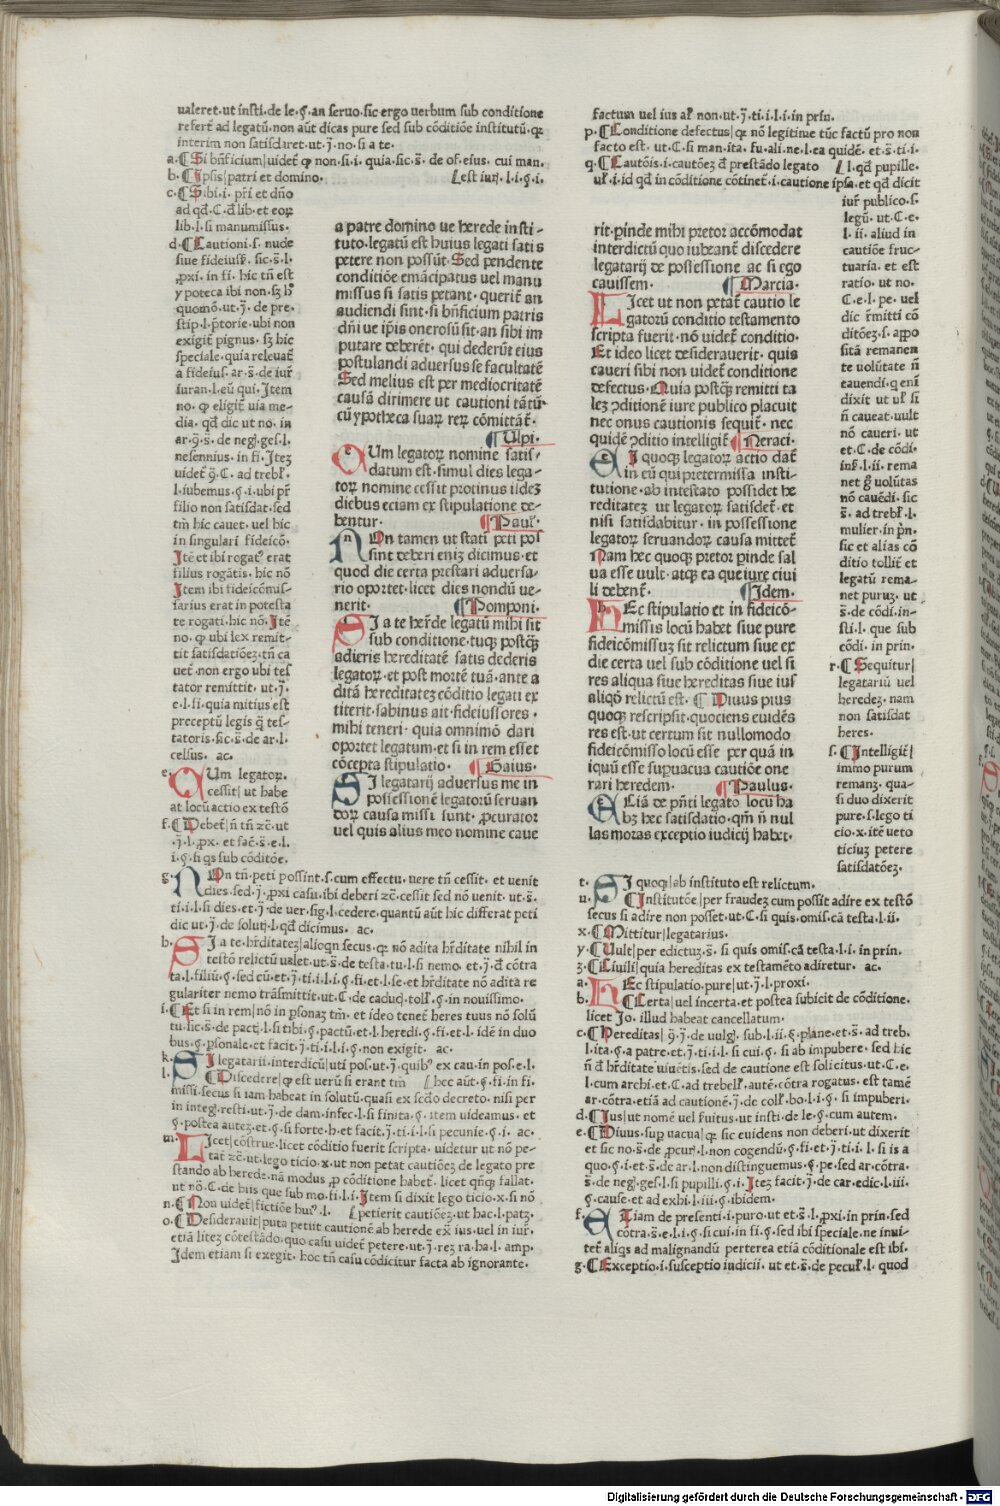 ualeret·ut insti·de le·ꝯ·an seruo·sic ergo uerbum sub conditione
refert̄ ad legatū·non aūt dicas pure sed sub cōditiōe institutū·qꝛ
interim non satisdaret·ut·ȷ̄·no·si a te·
a·¶Si bn̄ficium|uidet̄ ꝙ non·si·i· quia·sic·s̄· de of·eius· cui man·
b·¶Ipsis|patri et domino· [est iurȷ·l·i·ꝯ·i·
c·¶Sibi·i· pr̄i et dn̄o
ad qd̄·C·d̄ lib·et eoꝝ
lib·l·si manumissus·
d·¶Cautioni·s· nude
siue fideiuss̄·sic·s̄·l·
ꝓxi·in fi· hic tn̄ est
ypoteca ibi non·sꝫ h̄
quomō·ut·ȷ̄·de pre-
stip·l·p̄torie·ubi non
exigit̄ pignus· sꝫ hic
speciale·quia releuat̄
a fideius· ar·s̄·de iur̄
iuran·l·eū qui· Item
no· ꝙ eligit̄ uia me-
dia· qd̄ dic ut no· in
ar·ȷ̄·s̄·de negl·ges·l·
nesennius·in fi·Iteꝫ
uidet̄ ꝙ·C· ad trebl·
l·iubemus·ꝯ·i·ubi pr̄
filio non satisdat·sed
tm̄ hic cauet· uel hic
in singulari fideicō·
Itē et ibi rogatꝰ erat
filius rogātis· hic nō
Item ibi fideicōmis-
sarius erat in potesta
te rogati·hic nō· Itē
no· ꝙ ubi lex remit-
tit satisdatiōeꝫ·tn̄ ca
uet̄·non ergo ubi tes
tator remittit· ut·ȷ̄·
e·l·si·quia mitius est
preceptū legis q̄ tes-
tatoris·sic·s̄·de ar·l·
celsus· ac·
e·QUm legatoꝝ·
cessit|ut habe
at locū actio ex testō
f·¶Debet|n̄ tn̄ ꝛc̄·ut
·ȷ̄·l·ꝓx·et fac·s̄·e·l·
i·ꝯ·si q̄s sub cōditōe·
a patre domino ue herede insti-
tuto·legatū est huius legati satis
petere non possūt·Sed pendente
conditiōe emācipatus uel manu
missus si satis petant·querit̄ an
audiendi sint·si bn̄ficium patris
dn̄i ue ip̄is onerosū sit·an sibi im
putare deberēt· qui dederūt eius
postulandi aduersus se facultatē
Sed melius est per mediocritatē
causā dirimere ut cautioni tātū-
cū ypotheca suaꝝ reꝝ cōmittāt̄·
¶Ulpi·
QUm legatoꝝ nomine satis-
datum est·simul dies lega-
toꝝ nomine cessit protinus iisdeꝫ
diebus eciam ex stipulatione de-
bentur· ¶Paul·
NOn tamen ut stati peti pos
sint deberi eniꝫ dicimus·et
quod die certa prestari aduersa-
rio oportet·licet dies nondū ue-
nerit· ¶Pomponi·
SI a te her̄de legatū mihi sit
sub conditione·tuqꝫ postq̄ꝫ
adieris hereditatē satis dederis
legatoꝝ·et post mortē tuā·ante a
ditā hereditateꝫ cōditio legati ex
titerit·sabinus ait·fideiussores·
mihi teneri·quia omnimō dari
oportet legatum·et si in rem esset
cōcepta stipulatio· ¶Gaius·
SI legatarij aduersus me in
possessionē legatoꝝ seruan
doꝝ causa missi sunt· ꝓcurator
uel quis alius meo nomine caue
g·NOn tn̄·peti possint·s·cum effectu·uere tn̄ cessit· et uenit
dies·sed·ȷ̄·ꝓxi casu·ibi deberi ꝛc̄·cessit sed nō uenit· ut·s̄·
ti·i·l·si dies·et·ȷ̄·de uer·sig·l·cedere·quantū aūt hic differat peti
dic ut·ȷ̄·de solutȷ·l·qd̄ dicimus· ac·
h·SI a te·hr̄ditateꝫ|alioqn secus·qꝛ nō adita hr̄ditate nihil in
testō relictū ualet·ut·s̄·de testa·tu·l·si nemo·et·ȷ̄·d̄ cōtra
ta·l·filiū·ꝯ·sed cū·et·ȷ̄·ti·i·l·i·ꝯ·fi·et·l·se·et hr̄ditate nō adita re
gulariter nemo trāsmittit·ut·C·de caducȷ·toll·ꝯ·in nouissimo·
i·¶Et si in rem|nō in ꝑsonaꝫ tm̄· et ideo tenet̄ heres tuus nō solū
tu·sic·s̄·de pactȷ·l·si tibi·ꝯ·pactū·et·l·heredi·ꝯ·fi·et·l· idē in duo
bus·ꝯ·ꝑsonale·et facit·ȷ̄·ti·i·l·i·ꝯ·non exigit· ac·
k·SI legatarii·interdicū|uti pos·ut·ȷ̄·quibꝰ ex cau·in pos·e·l·
l·¶Discedere|ꝙ est uerū si erant tm̄ [hec aūt·ꝯ·fi·in fi·
missi·secus si iam habeat in solutū·quasi ex scd̄o decreto·nisi per
in integȷ·resti·ut·ȷ̄·de dam·infec·l·si finita·ꝯ·item uideamus·et
ꝯ·postea auteꝫ·et·ꝯ·si forte·h·et facit·ȷ̄·ti·i·l·si pecunie·ꝯ·i· ac·
m·LIcet|cōstrue·licet cōditio fuerit scripta· uidetur ut nō pe-
tat ꝛc̄·ut·lego ticio·x·ut non petat cautiōeꝫ de legato pre
stando ab herede·nā modus ꝓ cōditione habet̄·licet qn̄qꝫ fallat·
ut nō·C·de hiis que sub mo·fi·l·i·Item si dixit lego ticio·x·si nō
n·¶Non uidet̄|fictiōe huiꝰ·l· [petierit cautiōeꝫ·ut hac·l·patꝫ·
o·¶Desiderauit|puta petiit cautionē ab herede ex ius·uel in iur̄·
etiā liteꝫ cōtestādo·quo casu uidet̄ petere·ut·ȷ̄·reꝫ ra·ha·l· amp·
Idem etiam si exegit· hoc tn̄ casu cōdicitur facta ab ignorante·
factum uel ius al̄ non·ut·ȷ̄·ti·i·l·i·in prin·
p·¶Conditione defectus|qꝛ nō legitiue tūc factū pro non
facto est· ut·C·si man·ita·fu·ali·ne·l·ea quidē· et·s̄·ti·i·
q·¶Cautōis·i·cautōeꝫ d̄ prestādo legato [l·qd̄ pupille·
ul̄·i·id qd̄ in cōditione cōtinet̄·i·cautione ipsa·et qd̄ dicit
iur̄ publico·s·
legū· ut·C·e·
l·ii·aliud in
cautiōe fruc-
tuaria· et est
ratio·ut no·
C·e·l·pe·uel
dic r̄mitti cō
ditōeꝫ·s·aꝑpo
sitā remanen
te uolūtate n̄
cauendi·q enī
dixit ut ul̄ si
n̄ caueat·uult
nō caueri· ut
et·C·de condi·
inf̄·l·ii· rema
net g̊ uolūtas
nō cauēdi·sic
s̄·ad trebl·l·
mulier·in p̄n·
sic et alias cō
ditio tollit̄ et
legatū rema-
net puruꝫ·ut
s̄·de cōdi·in-
sti·l·que sub
cōdi·in prin·
r·¶Sequitur|
legatariū uel
heredeꝫ·nam
non satisdat
heres·
s·¶Intelligit̄|
immo purum
remanꝫ·qua-
si duo dixerit
pure·s·lego ti
cio·x·itē ueto
ticiuꝫ petere
satisdatōeꝫ·
rit·pinde mihi pretor accōmodat
interdictū quo iubeant̄ discedere
legatarij de possessione ac si ego
cauissem· ¶Marcia·
LIcet ut non petat̄ cautio le
gatoꝝū conditio testamento
scripta fuerit·nō uidet̄ conditio·
Et ideo licet desiderauerit· quis
caueri sibi non uidet̄ conditione
defectus·Quia postq̄ꝫ remitti ta
leꝫ ↄditionē iure publico placuit
nec onus cautionis sequit̄· nec
quidē ↄditio intelligit̄ ¶Neraci·
EI quoqꝫ legatoꝝ actio dat̄
in cū qui pretermissa insti-
tutione·ab intestato possidet he
reditateꝫ ut legatoꝝ satisdet̄·et
nisi satisdabitur·in possessione
legatoꝝ seruandoꝝ causa mittet̄
Nam hec quoqꝫ pretor ꝑinde sal
ua esse uult·atqꝫ ea que iure ciui
li debent̄· ¶Idem·
HEc stipulatio et in fideicō-
missis locū habet siue pure
fideicōmissuꝫ sit relictum siue ex
die certa uel sub cōditione uel si
res aliqua siue hereditas siue ius
aliqd̄ relictū est· ¶Diuus pius
quoqꝫ rescripsit·quociens euidēs
res est·ut certum sit nullomodo
fideicōmisso locū esse per quā in
iquū esse suꝑuacua cautiōe one
rari heredem· ¶Paulus·
ECiā de pn̄ti legato locū ha
bꝫ hec satisdatio·qm̄ n̄ nul
las moras exceptio iudicij habet·
t·SI quoqꝫ|ab instituto est relictum·
u·¶Institutōe|per fraudeꝫ cum possit adire ex testō
secus si adire non posset·ut·C·si quis·omis·cā testa·l·ii·
x·¶Mittitur|legatarius·
y·¶Uult|per edictuꝫ·s̄· si quis omis·cā testa·l·i·in prin·
z·¶Ciuili|quia hereditas ex testamēto adiretur· ac·
a·HEc stipulatio·pure|ut·ȷ̄·l·proxi·
b·¶Certa|uel incerta·et postea subicit de cōditione·
licet Jo·illud habeat cancellatum·
c·¶Hereditas|ꝙ·ȷ̄·de uulgȷ·sub·l·ii·ꝯ·plane·et·s̄·ad treb·
l·ita·ꝯ·a patre·et·ȷ̄·ti·i·l·si cui·ꝯ·si ab impubere· sed hic
n̄ d̄ hr̄ditate uiuētis·sed de cautione est solicitus·ut·C·e·
l·cum archi·et·C·ad trebell·autē·cōtra rogatus·est tamē
ar·cōtra·etiā ad cautionē·ȷ̄·de coll·bo·l·i·ꝯ·si impuberi·
d·¶Ius|ut nomē uel ꝼuitus·ut insti·de le·ꝯ·cum autem·
e·¶Diuus·suꝑ uacua|qꝛ sic euidens non deberi·ut dixerit
et sic no·s̄·de ꝓcurȷ·l·non cogendū·ꝯ·fi·et·ȷ̄·ti·i·l·si is a
quo·ꝯ·i·et·s̄·de ar·l·non distinguemus·ꝯ·pe·sed ar·cōtra·
s̄·de negl·ges·l·si pupilli·ꝯ·i· Iteꝫ facit·ȷ̄·de car·edic·l·iii·
ꝯ·cause·et ad exhi·l·iii·ꝯ·ibidem·
f·ETiam de presenti·i·puro·ut et·s̄·l·ꝓxi·in prin·sed
cōtra·s̄·e·l·i·ꝯ·si cui·in fi·ꝯ·sed ibi speciale·ne inui-
tet̄ aliqs ad malignandū perterea etiā cōditionale est ibi·
g·¶Exceptio·i·susceptio iudicii· ut et·s̄·de pecul·l· quod
Digitalisierung gefördert durch die Deutsche Forschungsgemeinschaft - DFG